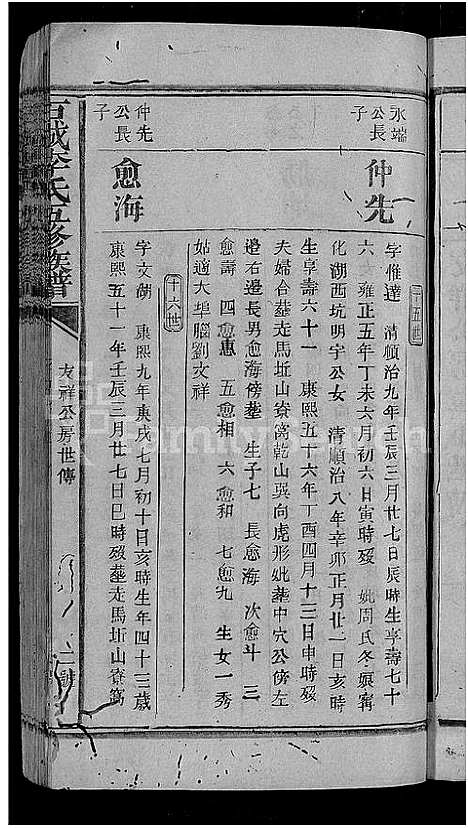 十五世
永端
公長
子
仲先
字惟達 清順治九年壬辰三月廿七日辰時生享壽七十
六 雍正五年丁未六月初六日寅時歿 妣周氏冬娘甯
化湖西坑明宇公女 清順治八年辛卯正月廿一日亥時
生享壽六十一 康熙五十六年丁酉四月十三日申時歿
夫婦合葬走馬坵山寮窩乾山巽向虎形妣葬中穴公傍左
邉右邉長男愈海傍葬 生子七 長愈海 次愈斗 三
愈壽 四愈惠 五愈相 六愈和 七愈九 生女一秀
姑適大埠腦劉文祥
十六世
仲先
公長
子
愈海
字文湖 康熙九年庚戌七月初十日亥時生年四十三歲
康熙五十一年壬辰三月廿七日巳時歿葬走馬坵山寮窩
李氏五修族譜
友祥公房世傳